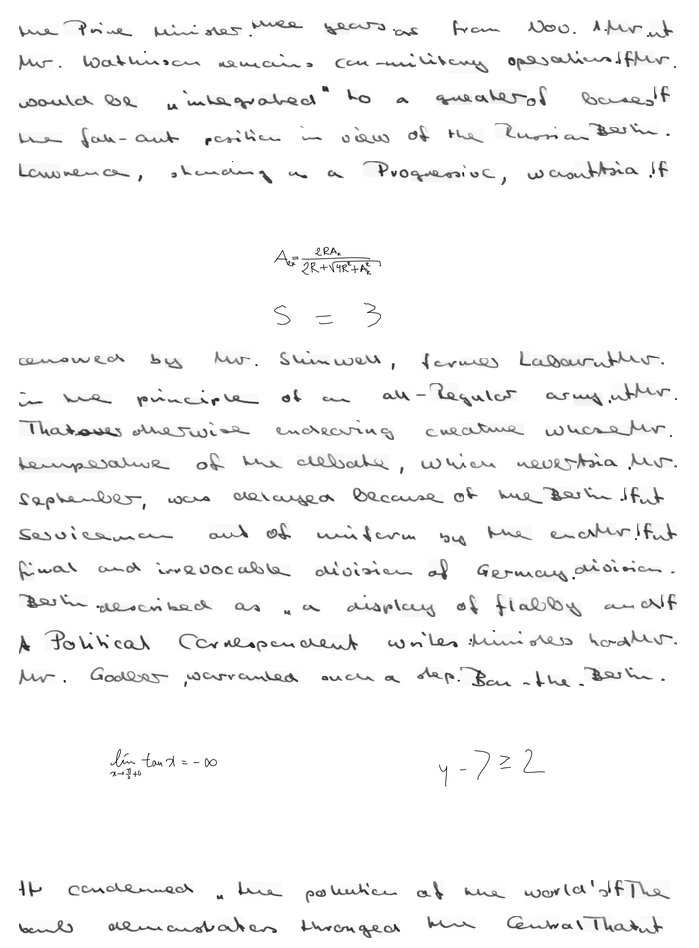 the Prime Minister. three years as from Nov. 1. Mr. ut
Mr. Watkinson remains con-military operations. If Mr.
would be "integrated" to a greater of bases If
the fall-out position in view of the Russian Berlin.
Lawrence, standing as a Progressive, wasn't Asia. If
A_{ex} = \frac{2RA_k}{2R+\sqrt{4R^2+A_k^2}}
S = 3
censored by Mr. Shinwell, former Labour ut Mr.
in the principle of an all-Regular army. ut Mr.
That over otherwise endearing creature whose Mr.
temperature of the debate, which never Asia. Mr.
September, was delayed because of the Berlin. If ut
servicemen out of uniform by the end Mr. If ut
final and irrevocable division of Germany. division.
Berlin described as "a display of flabby and If
A Political Correspondent writes: Ministers had Mr.
Mr. Godber, warranted such a step. Ban-the. Berlin.
\lim_{x \to \frac{\pi}{2}+0} \tan x = -\infty
y - 7 ≥ 2
It condemned "the pollution of the world's If The
bomb demonstrators thronged the Central That ut